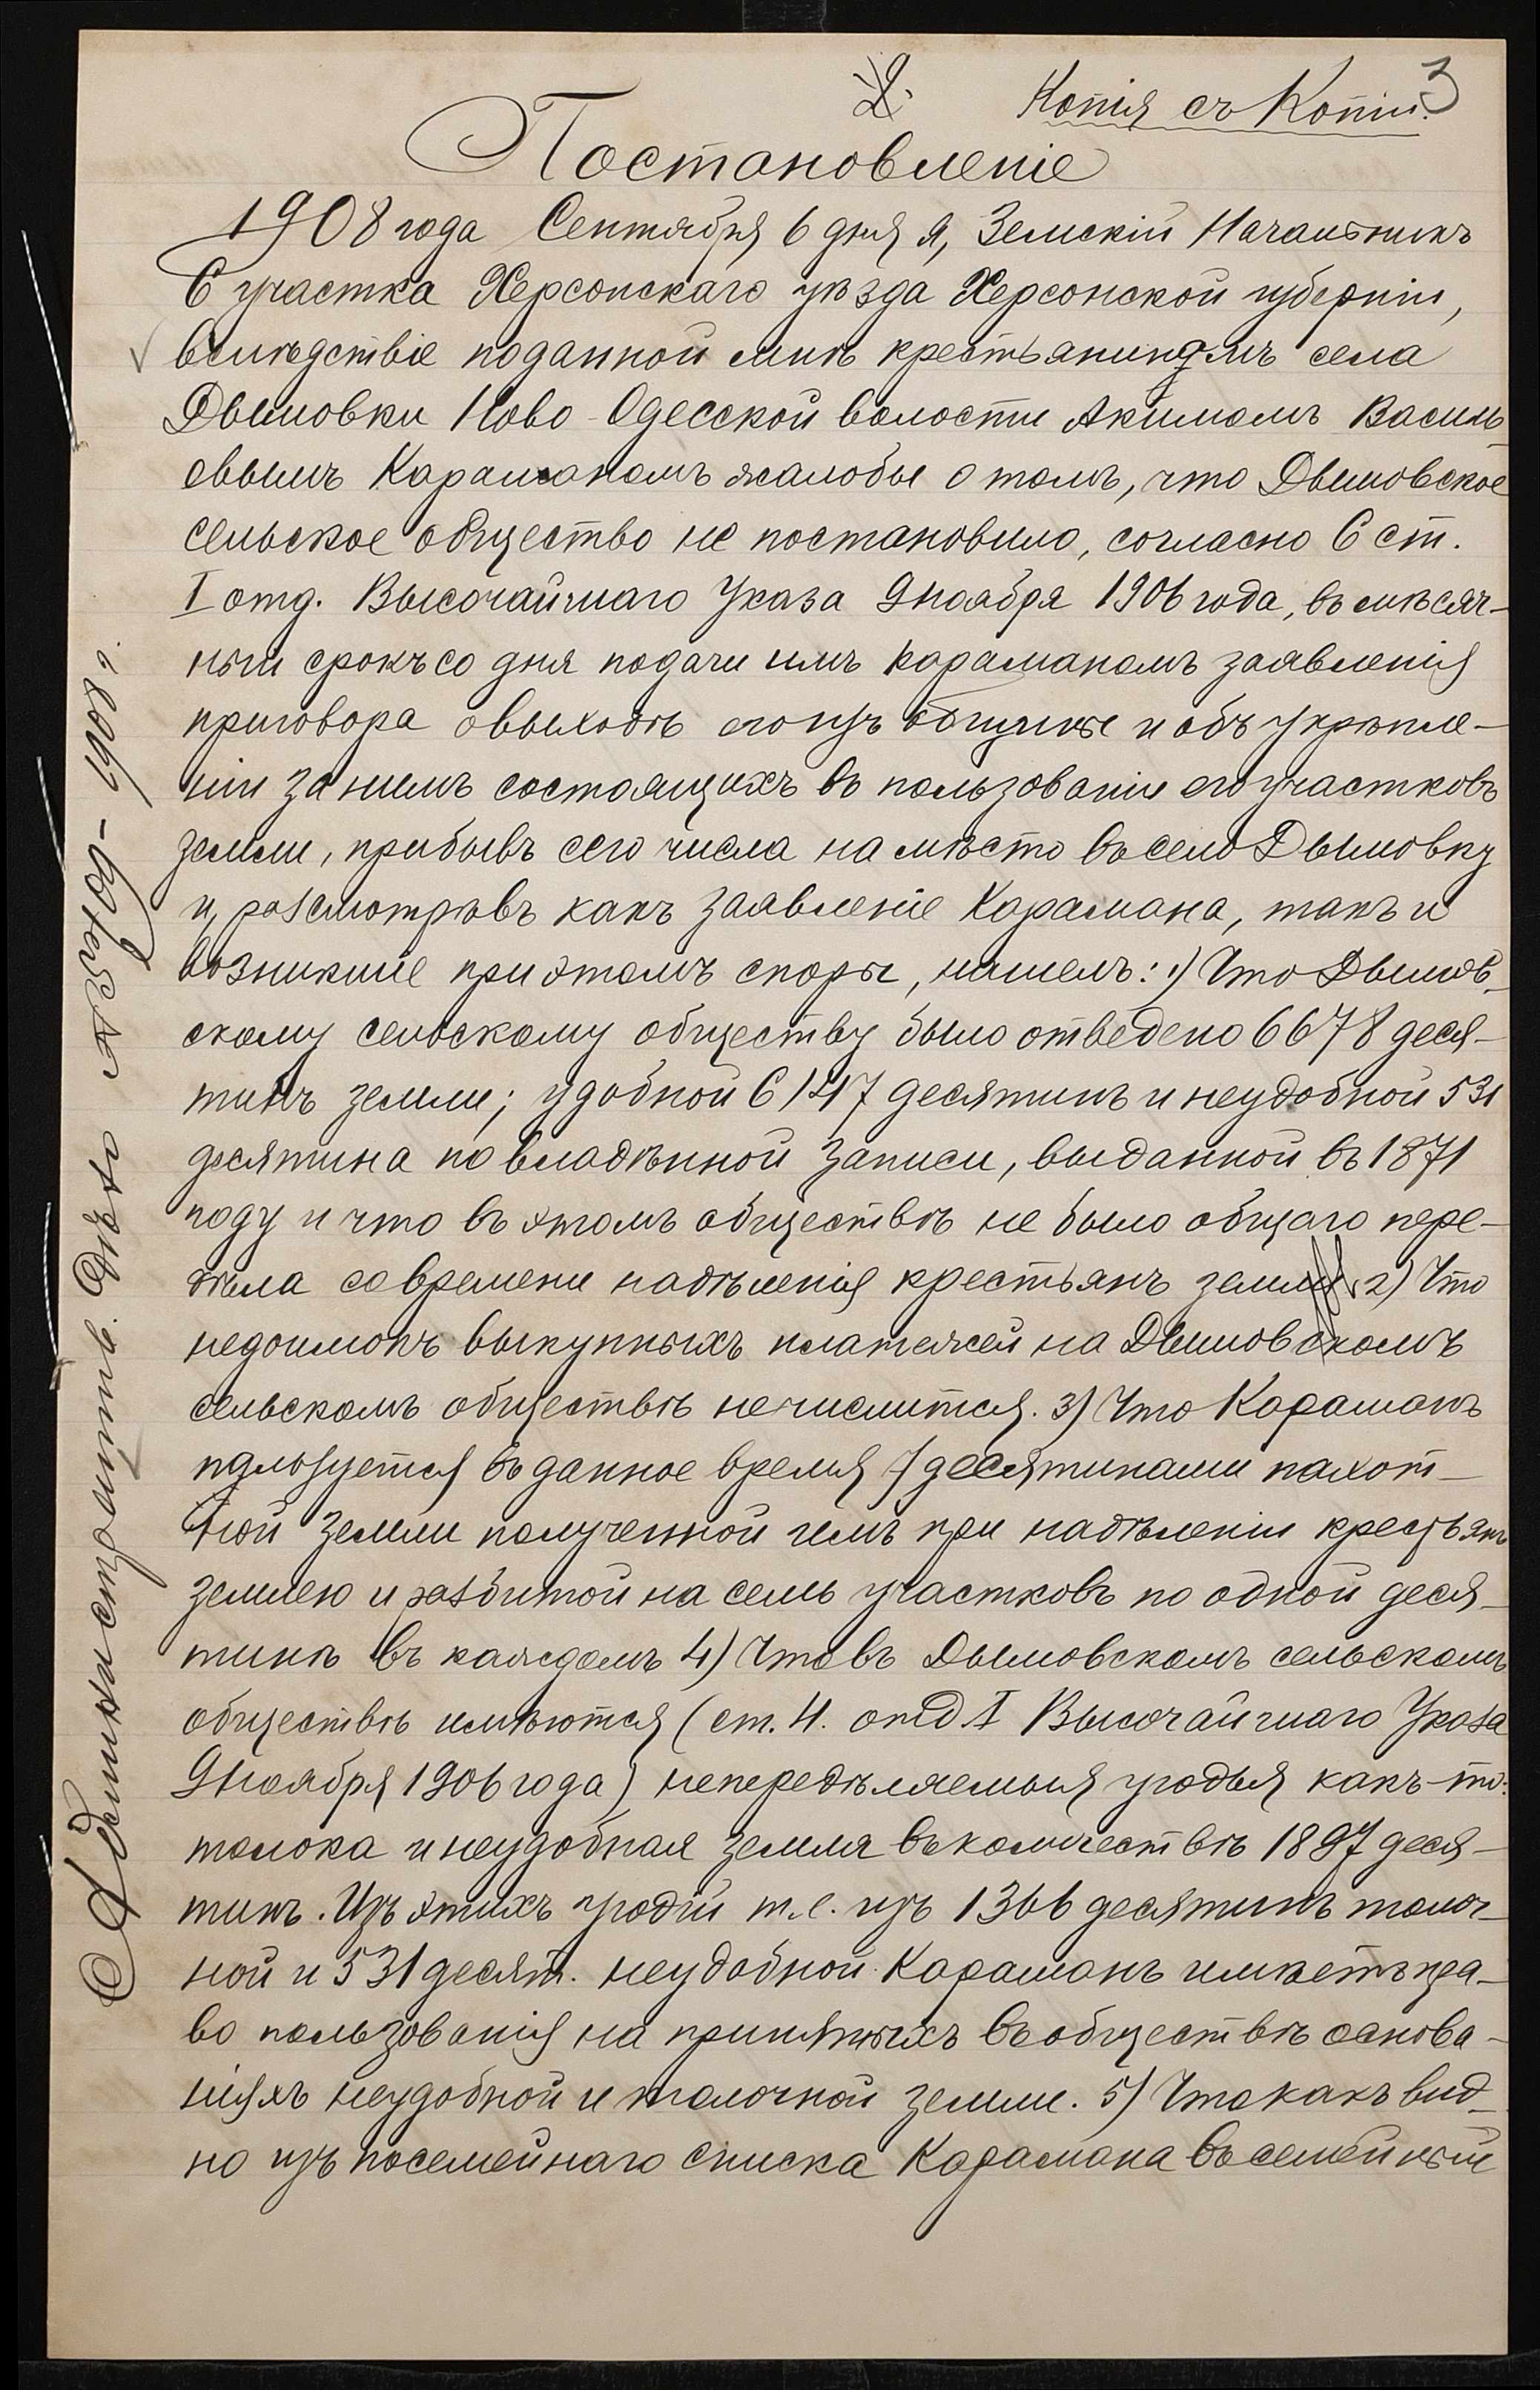 2.
Копія съ Копіи.
3
Постановленіе
1908 года Сентября 6 дня я, Земскій Начальникъ
6 участка Херсонскаго уѣзда Херсонской губерніи,
вслѣдствіе поданной мнѣ крестьяниномъ села
Дымовки Ново-Одесской волости Акимомъ Василь-
евымъ Караманомъ жалобы о томъ, что Дымовское
сельское общество не постановило, согласно 6 ст.
I отд. Высочайшаго Указа 9 ноября 1906 года, въ мѣсяч-
ный срокъ со дня подачи имъ Караманомъ заявленія
приговора о выходѣ его изъ общины и объ укрѣпле-
ніи за нимъ состоящихъ въ пользованіи его участковъ
земли, прибывъ сего числа на мѣсто въ село Дымовку
и, разсмотрѣвъ какъ заявленіе Карамана, такъ и
возникшіе при этомъ споры, нашелъ: 1) Что Дымов-
скому сельскому обществу было отведено 6678 деся-
тинъ земли; удобной 6147 десятинъ и неудобной 531
десятина по владѣнной записи, выданной въ 1871
году и что въ этомъ обществѣ не было общаго пере-
дѣла со времени надѣленія крестьянъ землей 2) Что
недоимокъ выкупныхъ платежей на Дымовскомъ
сельскомъ обществѣ не числится. 3) Что Караманъ
пользуется въ данное время 7 десятинами пахот-
ной земли полученной имъ при надѣленіи крестьянъ
землею и разбитой на семь участковъ по одной деся-
тинѣ въ каждомъ 4) Что въ Дымовскомъ сельскомъ
обществѣ имѣются (ст. 4. отд I Высочайшаго Указа
9 ноября 1906 года) непередѣляемыя угодья какъ-то:
толока и неудобная земля въ количествѣ 1897 деся-
тинъ. Изъ этихъ угодій т.е. изъ 1366 десятинъ толоч-
ной и 531 десят. неудобной Караманъ имѣетъ пра-
во пользованія на принятыхъ въ обществѣ основа-
ніяхъ неудобной и толочной земли. 5) Что какъ вид-
но изъ посемейнаго списка Карамана въ семейный
Административ. Отдѣлъ 1908 г.